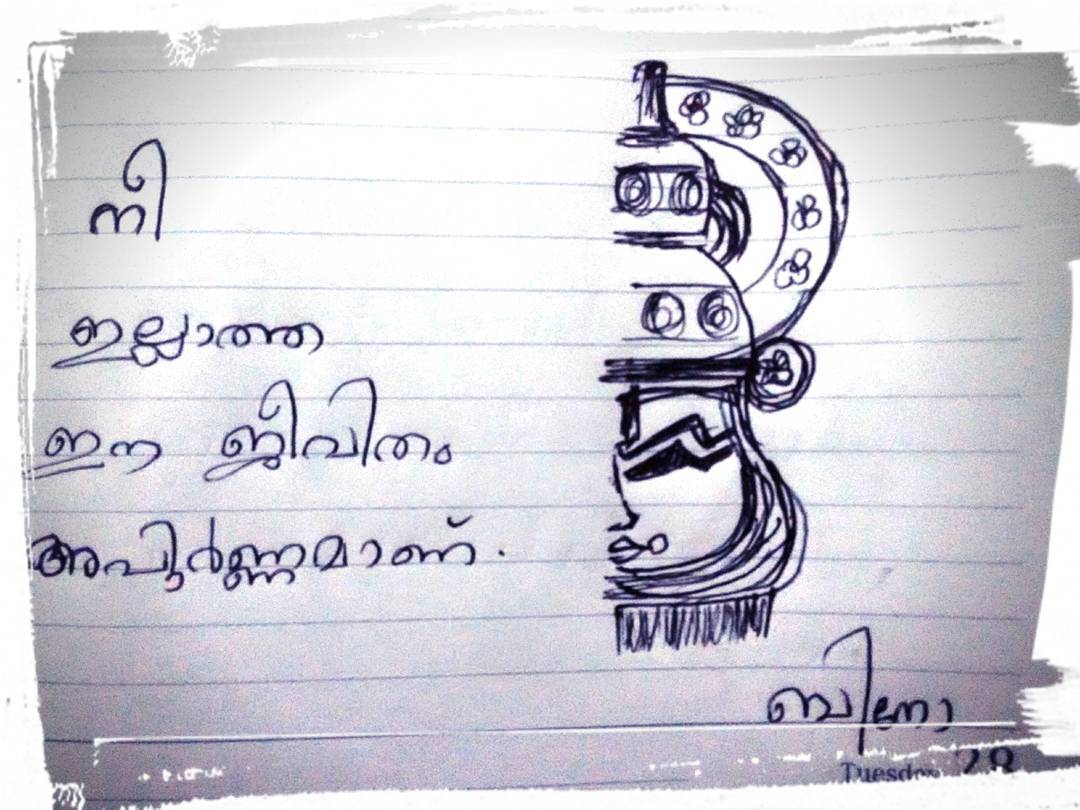 നീ
ഇല്ലാത്ത
ഈ ജീവിതം
അപൂർണ്ണമാണ്.
ബിനോ
Tuesday 28